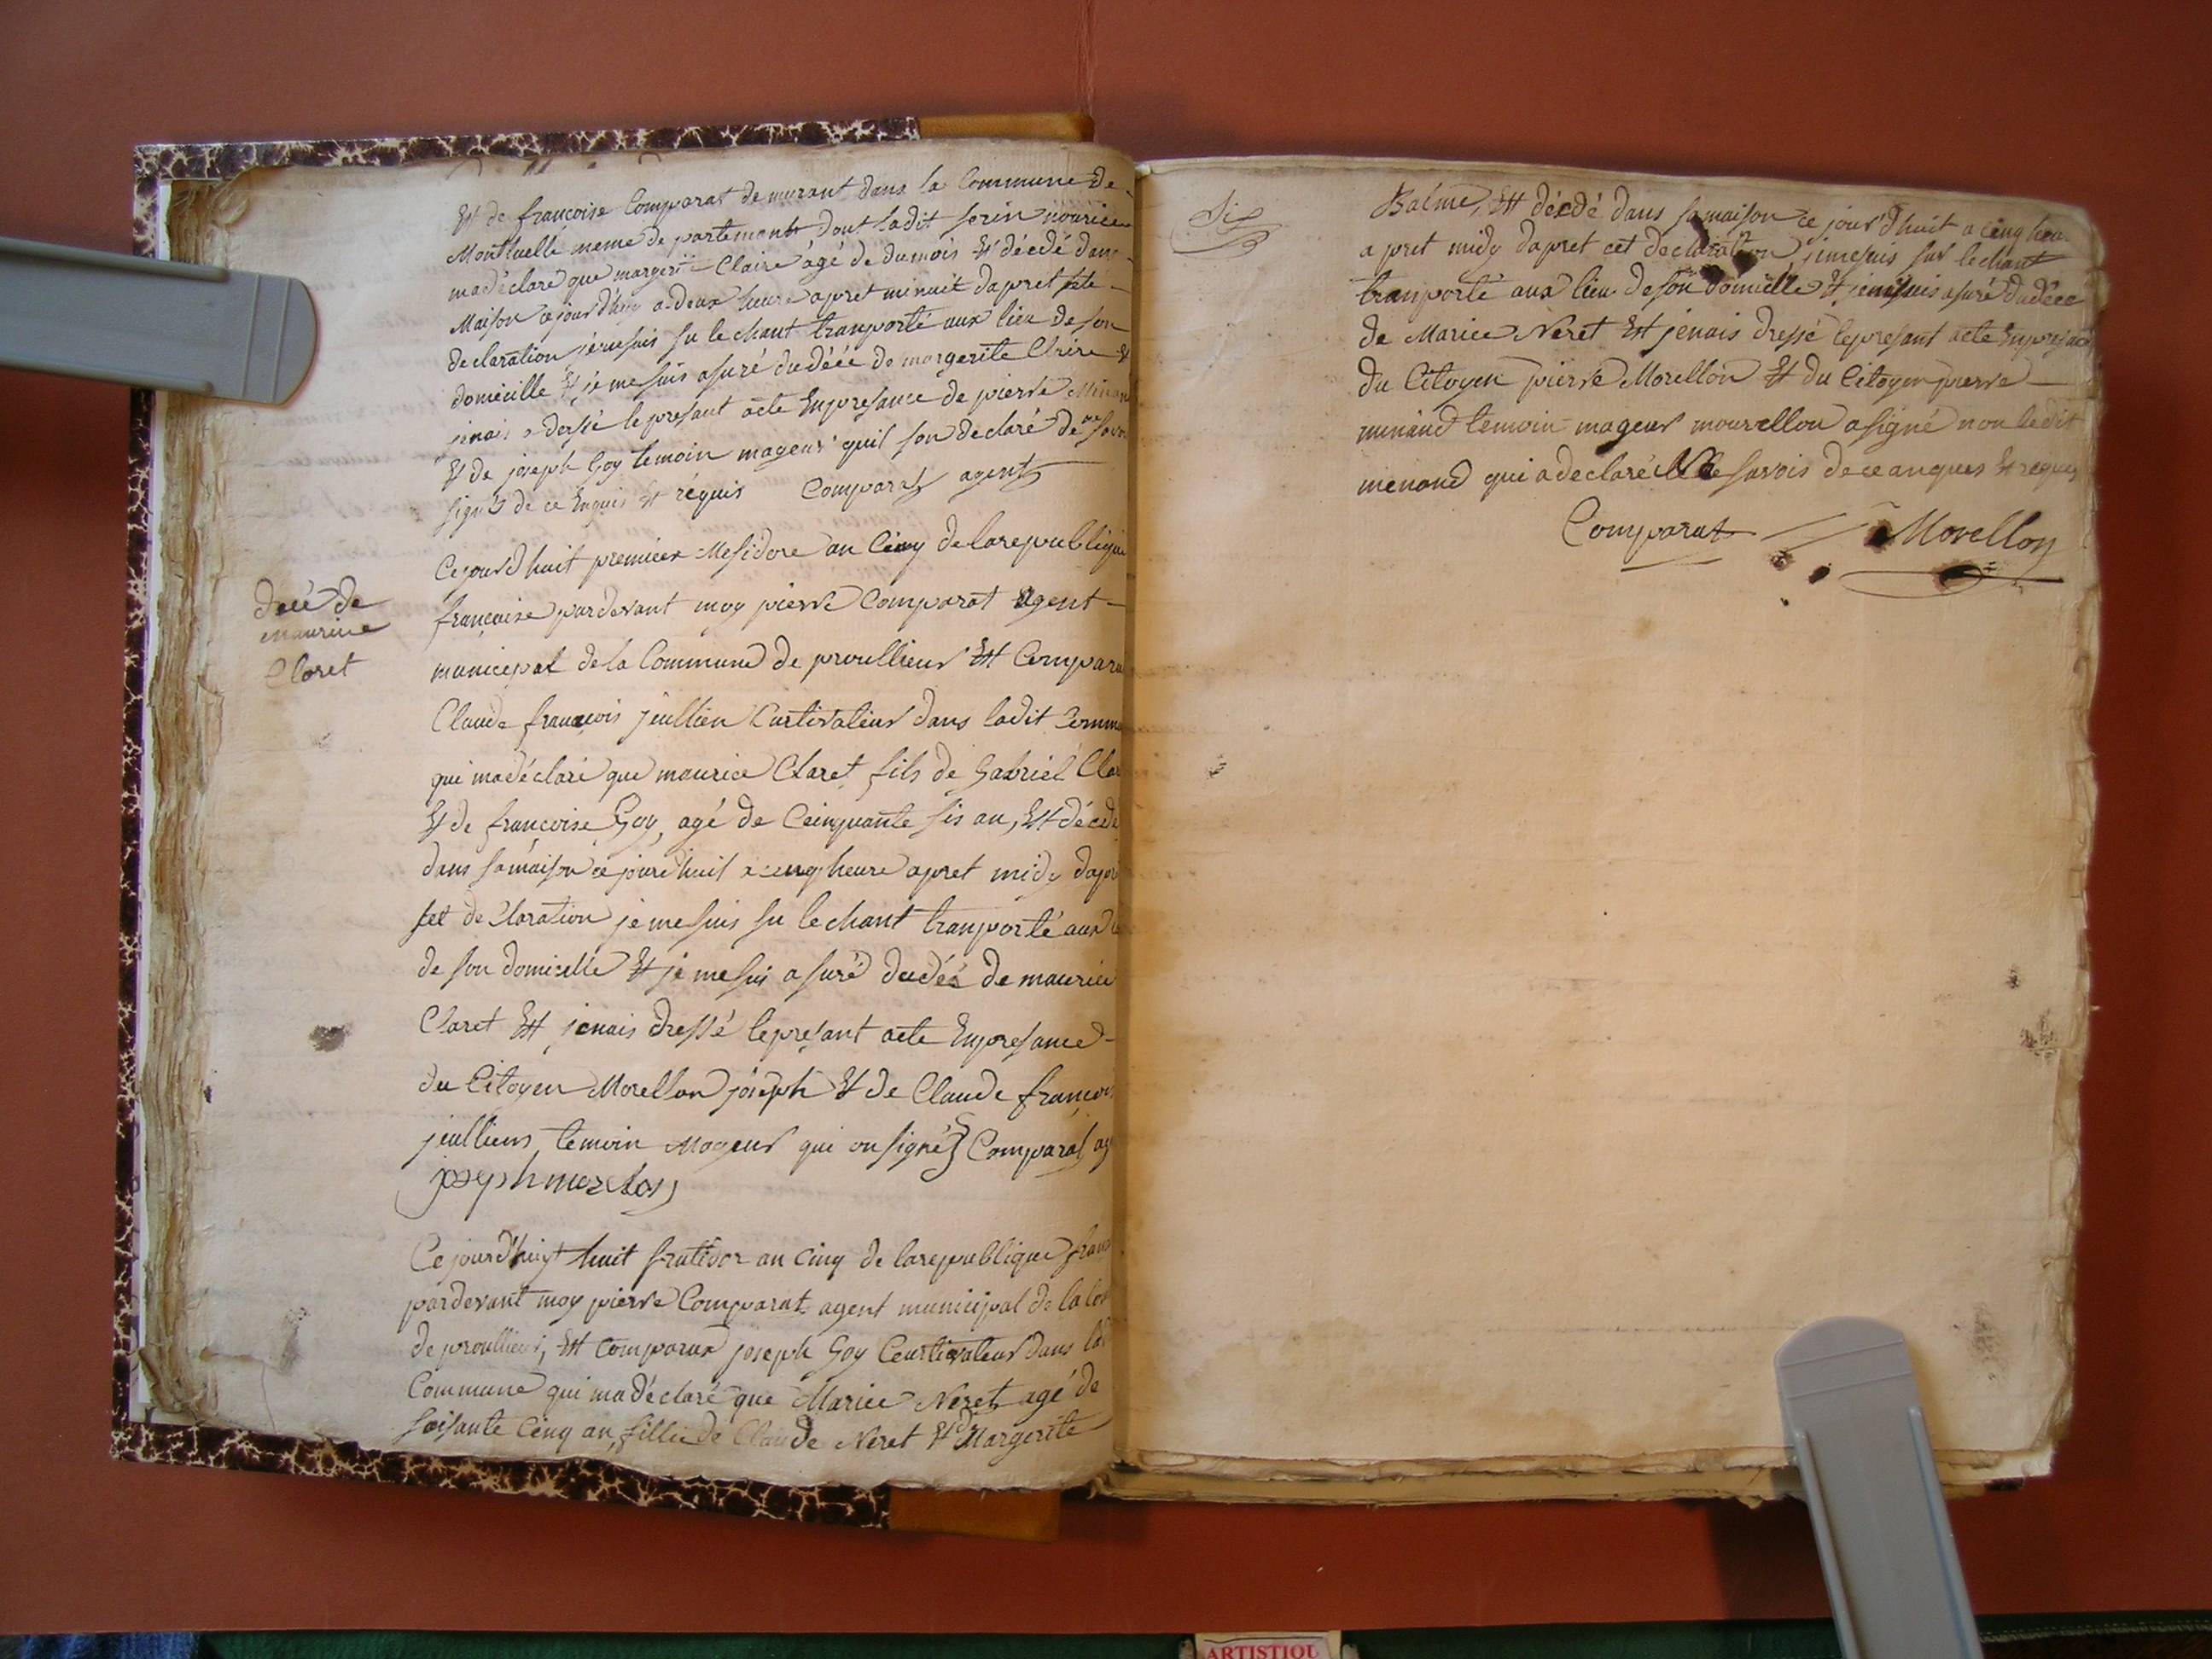 Et de francoise Comparat demurant dans la Commune de
Montluelle meme de partement dont ladit serin nourice
madéclaré que margerite Claire âgé de du mois Et décdé dans
Maison ce jourd'huy a deux heure apret minuit dapret sete
declaration jemesuis su le chant tranporté aux lieu de son
domicille Et je me suis asuré dudéée de margerite Claire Et
jenais dersé le presant acte Enpresance de pierre Minan
Et de joseph Goy temoin mageur quil son declaré de ne savoi
signé de ce Enquis Et réquis Comparat agent
Ce jourd huit premier Mesidore an Cinq de larepublique
francaise pardevant moy pierre Comparat agent
municepal de la Commune de proullieur Est Comparu
Claude francois jeullien Curtivateur dans ladit Comm
qui madéclaré que maurice Claret fils de Gabriel Cla
Et de francoise Goy, agé de Ceinquante sis an, Et décdé
dans samaison ce jourdhuit a cenq heure apret midy dapr
set declaration je mesuis su le chant tranporté aux
de son domicille Et je me suis asuré dudéé de maurice
Claret Et jenais dressé lepresant acte Enpresance
du Citoyen Morellon joseph Et de Claude francois
jeulliens temoin Mageur qui on signé Comparat ag
joseph morelon
deéé de
maurice
Claret
Ce jourd'huy huit frutidor an cinq de larepublique franc
pardevant moy pierre Comparat agent municipal de la Co
de proullieur, Est comparux joseph Goy Ceurtivateur dans lad
Commune qui madéclaré que Mariee Neret agé de
soisante Cinq an, fillie de Claude Neret Et de Margerite
Sis
Balme, Est décdé dans samaison ce jour d'huit a cinq heu
a pret midy dapret cet declaration, jemesuis sur lechant
tranporté aux lieu de son domicille Et jemesuis asuré dudéée
de Mariee Neret Est jenais dressé lepresant acte Enpresanc
du Citoyen pierre Morellon Et du Citoyen pierre
minand temoin mageur mourellon asigné non ledit
menand qui adeclaré Ne savois de ce anques Et reques
Comparat Morellon
ARTISTIQU